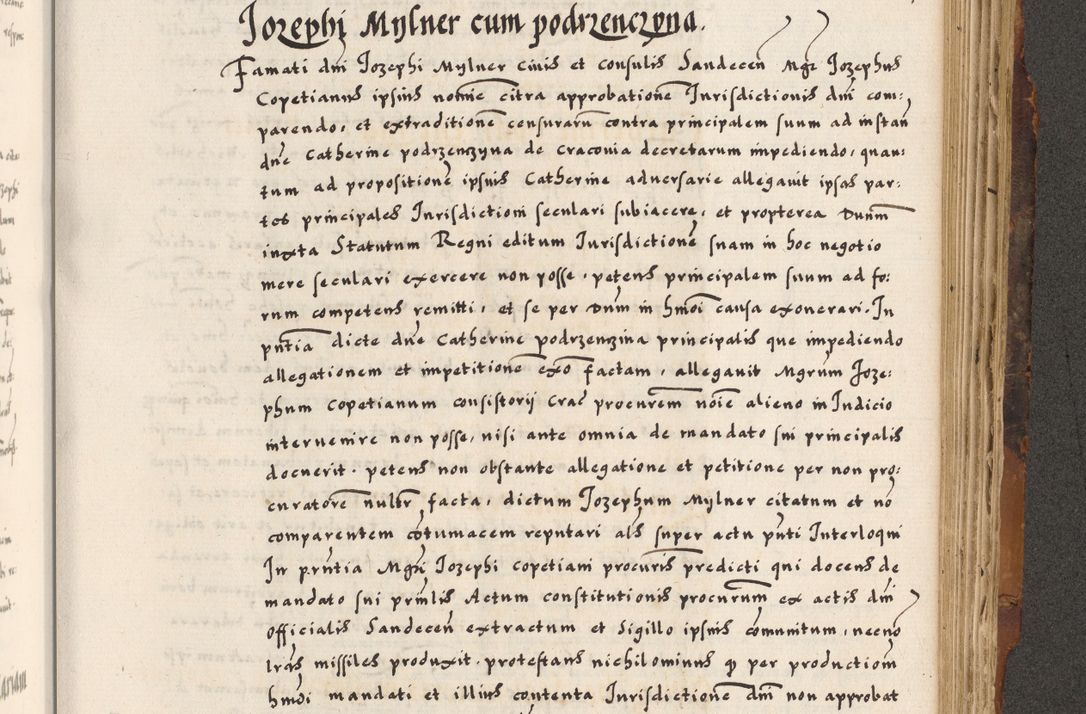 Jozephi Mylner cum podrzenczyna.
Famati dni Jozephi Mylner civis et consulis Sandecen Mgr Jozephus
Copetianus ipsius nomine citra approbatione Jurisdictionis dni com:
parendo, et extraditione censuraru contra principalem suum ad instan
dne Catherine podrzenczyna de Cracovia decretarum impediendo, quan:
tum ad propositione ipsius Catherine adversarie allegavit ipsas par:
tes principales Jurisdictioni seculari subiacere, et propterea Dnum
iuxta Statutum Regni editum Jurisdictione suam in hoc negotio
mere seculari exercere non posse, petens principalem suum ad fo:
rum competens remitti, et se per Dnm in hmoi causa exonerari. In
pntia dicte dne Catherine podrzenczina principalis que impediendo
allegationem et impetitione exo factam, allegavit Mgrum Joze:
phum Copetianum consistorij Crac procurem noie alieno in Judicio
intervenire non posse, nisi ante omnia de mandato sui principalis
docuerit. petens non obstante allegatione et petitione per non pro:
curatore nulltr facta, dictum Jozephum Mylner citatum et no
comparentem cotumacem reputari als super actu pnti Interloqui
In prntia Mgri Jozephi Copetiani procuris predicti qui docens de
mandato sui prinlis Actum constitutionis procurum ex actis dni
officialis Sandecen extractum et Sigillo ipsius comunitum, necno
lras missiles produxit, protestans nichilominus q per productiom
hmoi mandati et illius contenta Jurisdictione dni non approbat